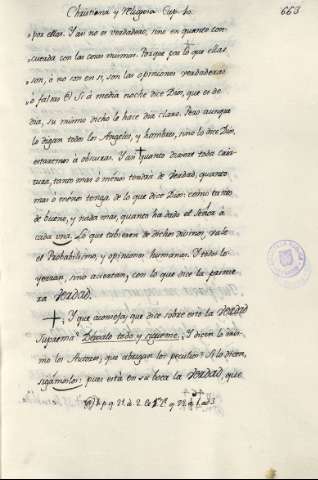 Christiana y Religiosa Cap. 10. 663
por ellas. Y asi no es verdadero, sino en quanto con-
cuerda con las cosas mismas. Porque por lo que ellas
son, ò no son en si, son las opiniones verdaderas
ò falsas (a) Si à media noche dice Dios, que es de
dia, su mismo dicho lo hace dia claro. Pero aunque
lo digan todos los Angeles, y hombres, sino lo dice Dios,
estaremos à obscuras. Y asi quanto dicere toda cria-
tura, tanto mas ò menos tendrà de Verdad, quanto
mas ò menos tenga de lo que dice Dios: como tanto
de bueno, y nada mas, quanto ha dado el Señor à
cada uno. Lo que tubieren de dichos divinos, vale
el Probabilismo, y opiniones humanas. Y todos lo
yerran, sino aciertan, con lo que dice la prime-
ra Verdad.
Y que aconseja, que dice sobre esto la Verdad
Suprema? Dexalo todo y sigueme. Y dicen lo mis-
mo los Autores, que abrigan los peculios? Si lo dicen,
sigamoslos: pues està en su boca la Verdad, que
(a) 1. p. q. 21. a. 2. q. ad 3